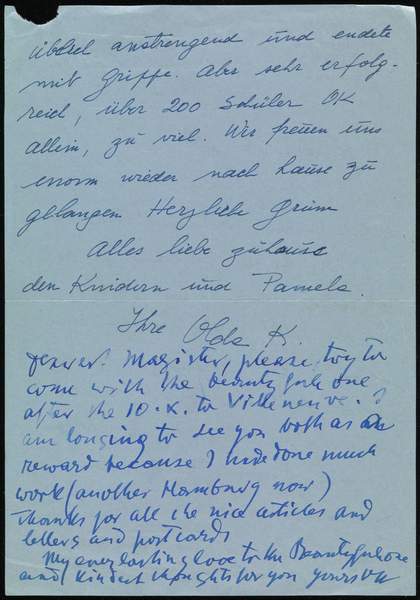 übrel anstrengend und endete
mit Grippe. Aber sehr erfolg-
reich, über 200 Schüler OK
allein, zu viel. Wir freuen uns
enorm wieder nach Hause zu
gelangen Herzliche Grüsse
Alles liebe zuhause
den Kindern und Pamela.
Ihre Olda K.
Magister, please, try to
come with the beautyfule one
after the 10.X. to Villeneuve. I
am longing to see you both as
reward because I have done much
work (another Hamburg now)
Thanks for all the nice articles and
letters and postcards
My everlasting love to the Beautyfule one
and kindest thoughts for you yours OK